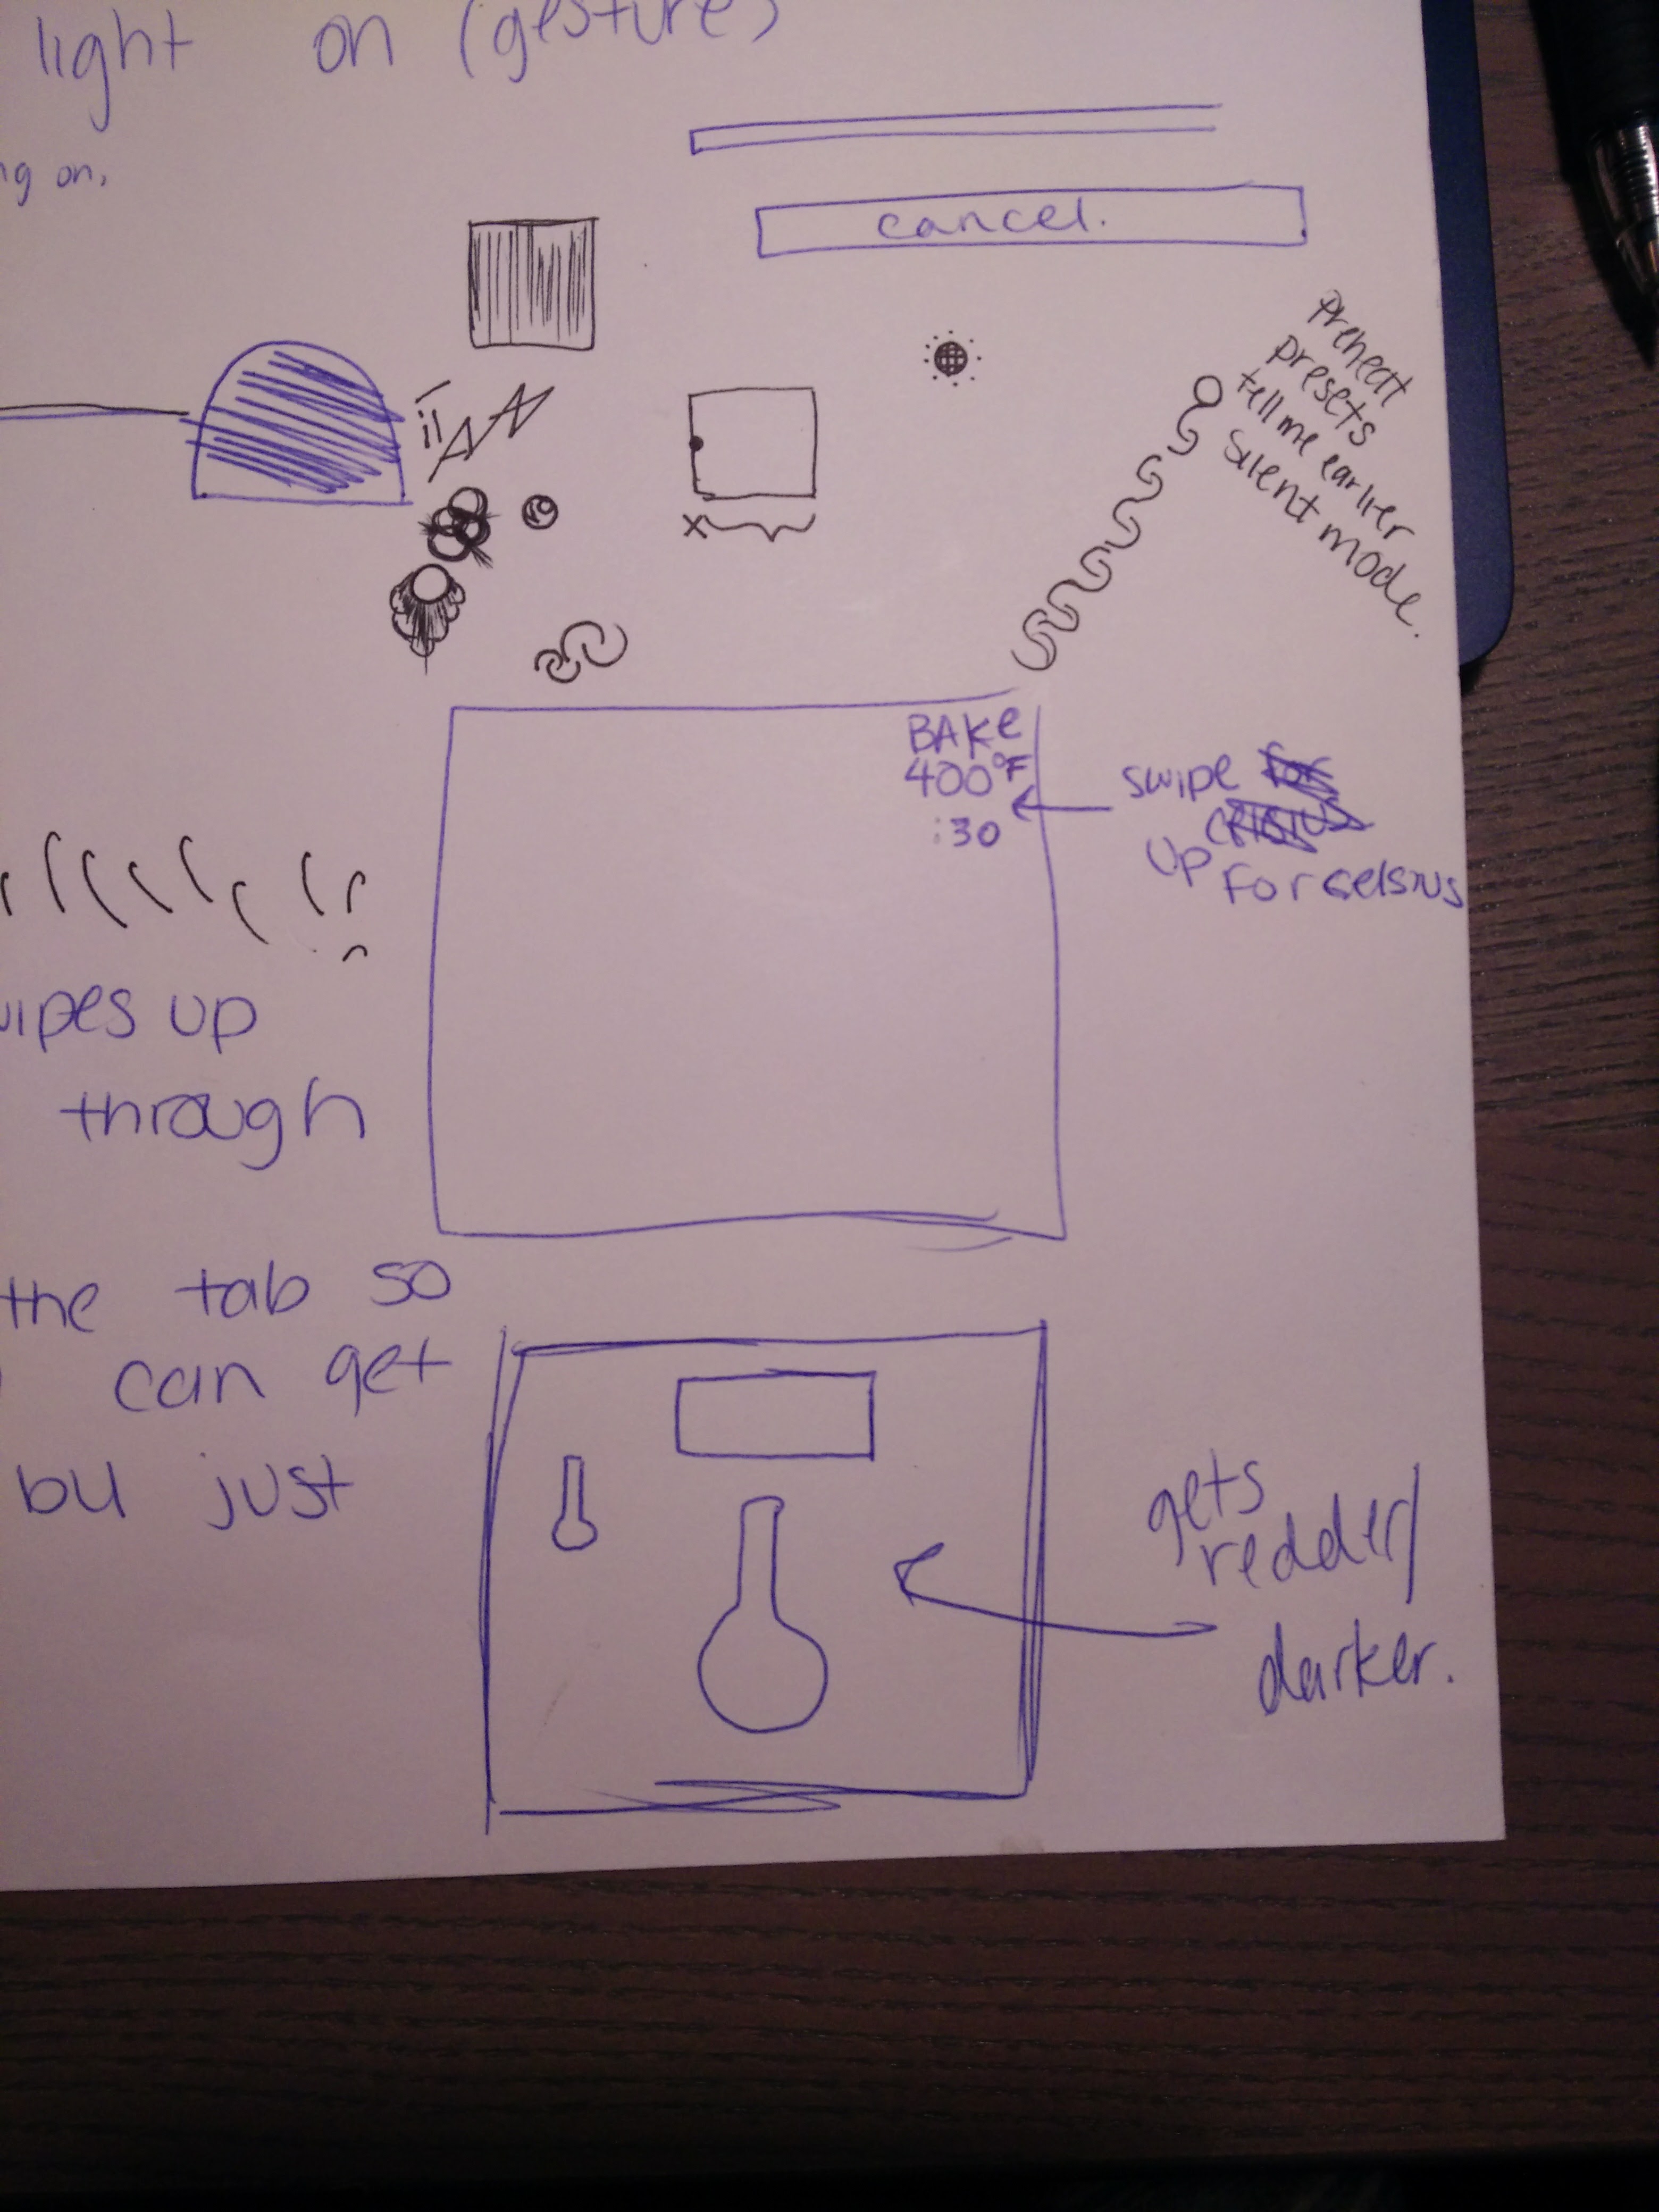 light on (gesture)
ng on.
cancel.
preheat
presets
tell me earlier
silent mode.
BAKe
400°F
:30
swipe for
celsius
up for celsius
wipes up
through
the tab so
can get
but just
gets
redder/
darker.